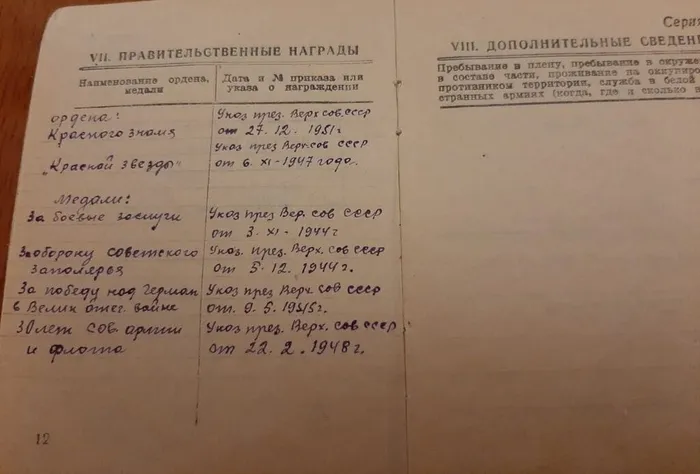 VII. ПРАВИТЕЛЬСТВЕННЫЕ НАГРАДЫ
Наименование ордена, медали
Дата и № приказа или указа о награждении
ордена:
Красного знамя
Указ през. Верх сов. СССР
от 27. 12. 1951г
"Красной звезды"
Указ през Верх. сов СССР
от 6. XI-1947 года.
Медали:
За боевые заслуги
Указ през Вер. сов СССР
от 3. XI-1944г
За оборону советского
заполярья
Указ. през. Верх. сов СССР
от 5. 12. 1944г.
За победу над Герман
в Велик отег. войне
Указ през Верх сов СССР
от. 9. 5. 1945г.
30 лет сов армии
и флота
Указ през. Верх. сов СССР
от 22. 2. 1948г.
12
Серия
VIII. ДОПОЛНИТЕЛЬНЫЕ СВЕДЕН
Пребывание в плену, пребывание в окруже
в составе части, проживание на оккупиро
противником территории, служба в белой
странных армиях (когда, где и сколько в